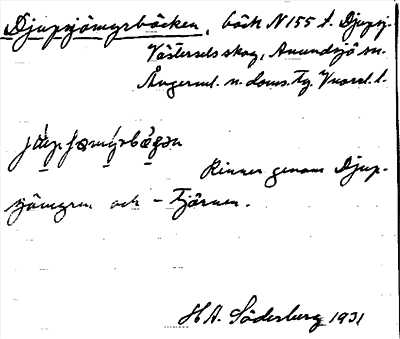 Djupsjömyrbäcken, bäck N 155 t. Djupsj.
Västersels skog, Anundsjö sn.
Ångerml. n. doms.
Rinner genom Djup-
sjömyren och - tjärnen.
H A. Söderberg 1931